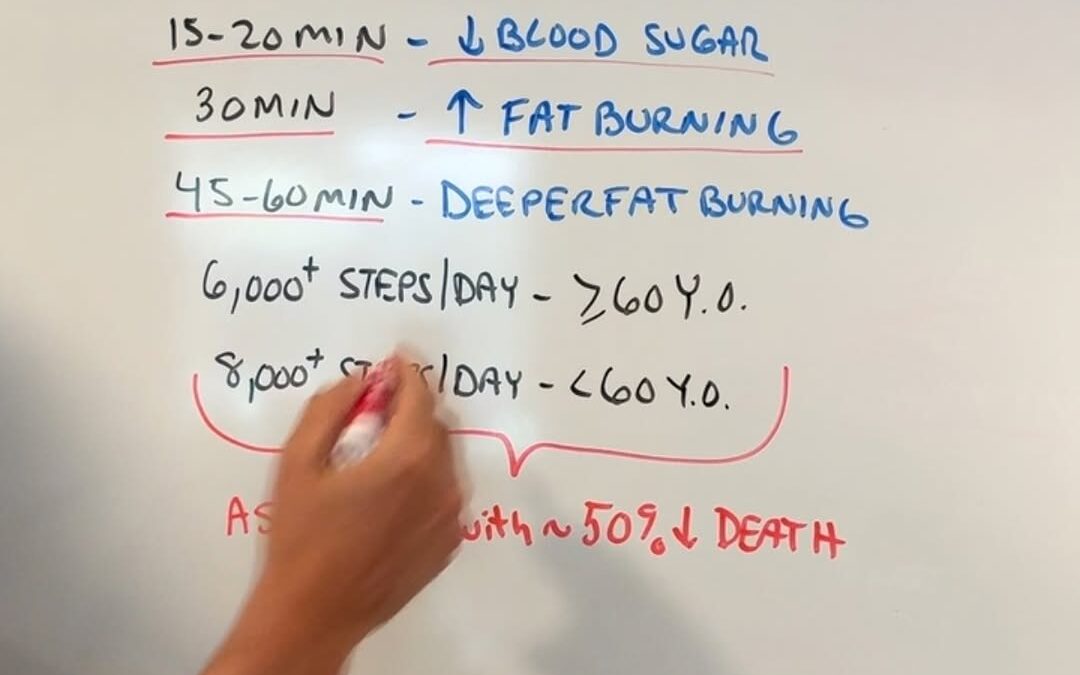 15-20 MIN - ↓ BLOOD SUGAR
30 MIN - ↑ FAT BURNING
45-60 MIN - DEEPER FAT BURNING
6,000+ STEPS/DAY - ≥60 Y.O.
8,000+ /DAY - <60 Y.O.
with ~ 50% ↓ DEATH